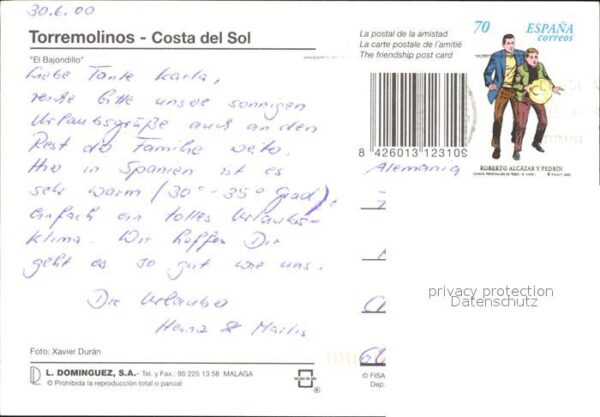 30.6.00
Torremolinos - Costa del Sol
"El Bajondillo"
Liebe Tante Karla,
reiche bitte unsere sonnigen
Urlaubsgrüße auch an den
Rest der Familie weiter.
Hier in Spanien ist es
sehr warm (30°-35° Grad),
einfach ein tolles Urlaubs-
klima. Wir hoffen Dir
geht es so gut wie uns.
Die Urlauber
Heinz &
Foto: Xavier Durán
L. DOMINGUEZ, S.A.- Tel. y Fax.: 95 225 13 58 MALAGA
© Prohibida la reproducción total o parcial
La postal de la amistad
La carte postale de l'amitié
The friendship post card
8 426013 123109
70 ESPAÑA
correos
ROBERTO ALCÁZAR Y PEDRÍN
Alemania
privacy protection
Datenschutz
© FISA
Dep.